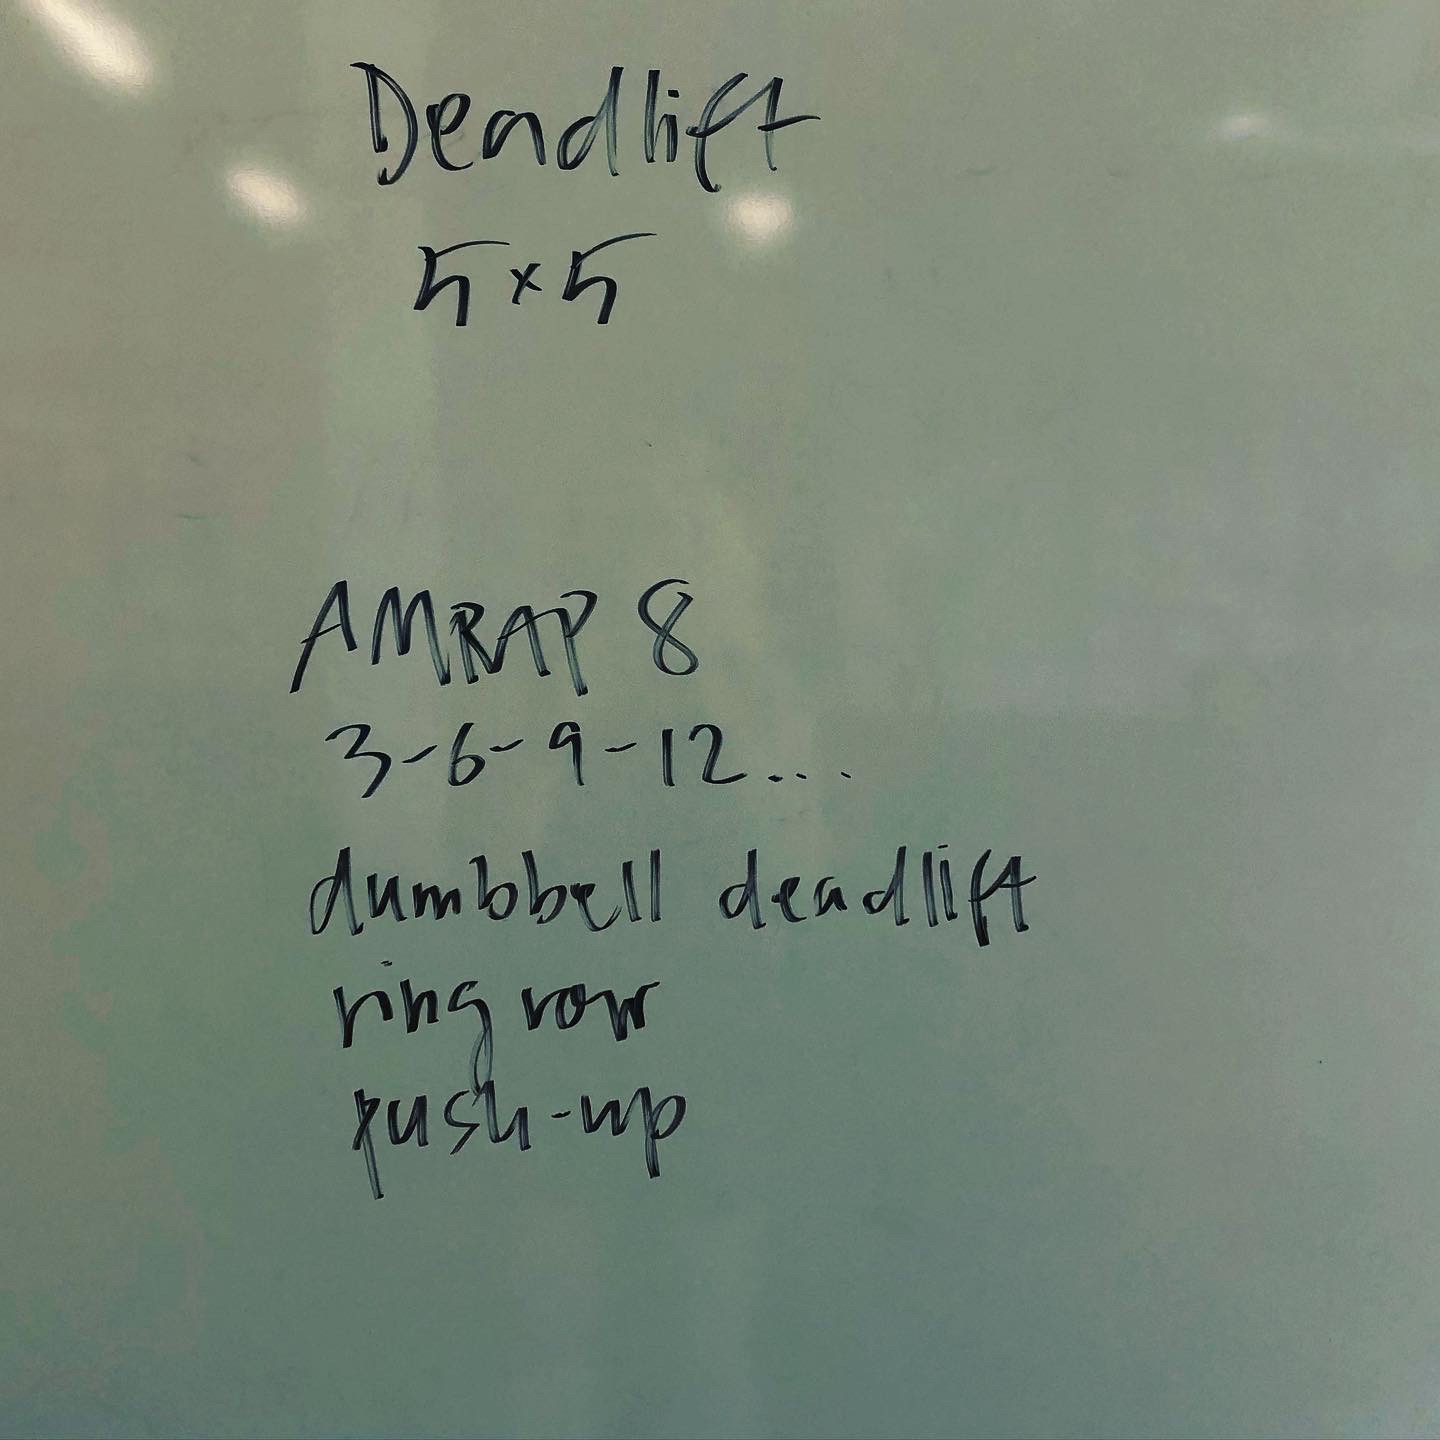 Deadlift
5x5
AMRAP 8
3-6-9-12...
dumbbell deadlift
ring row
push-up